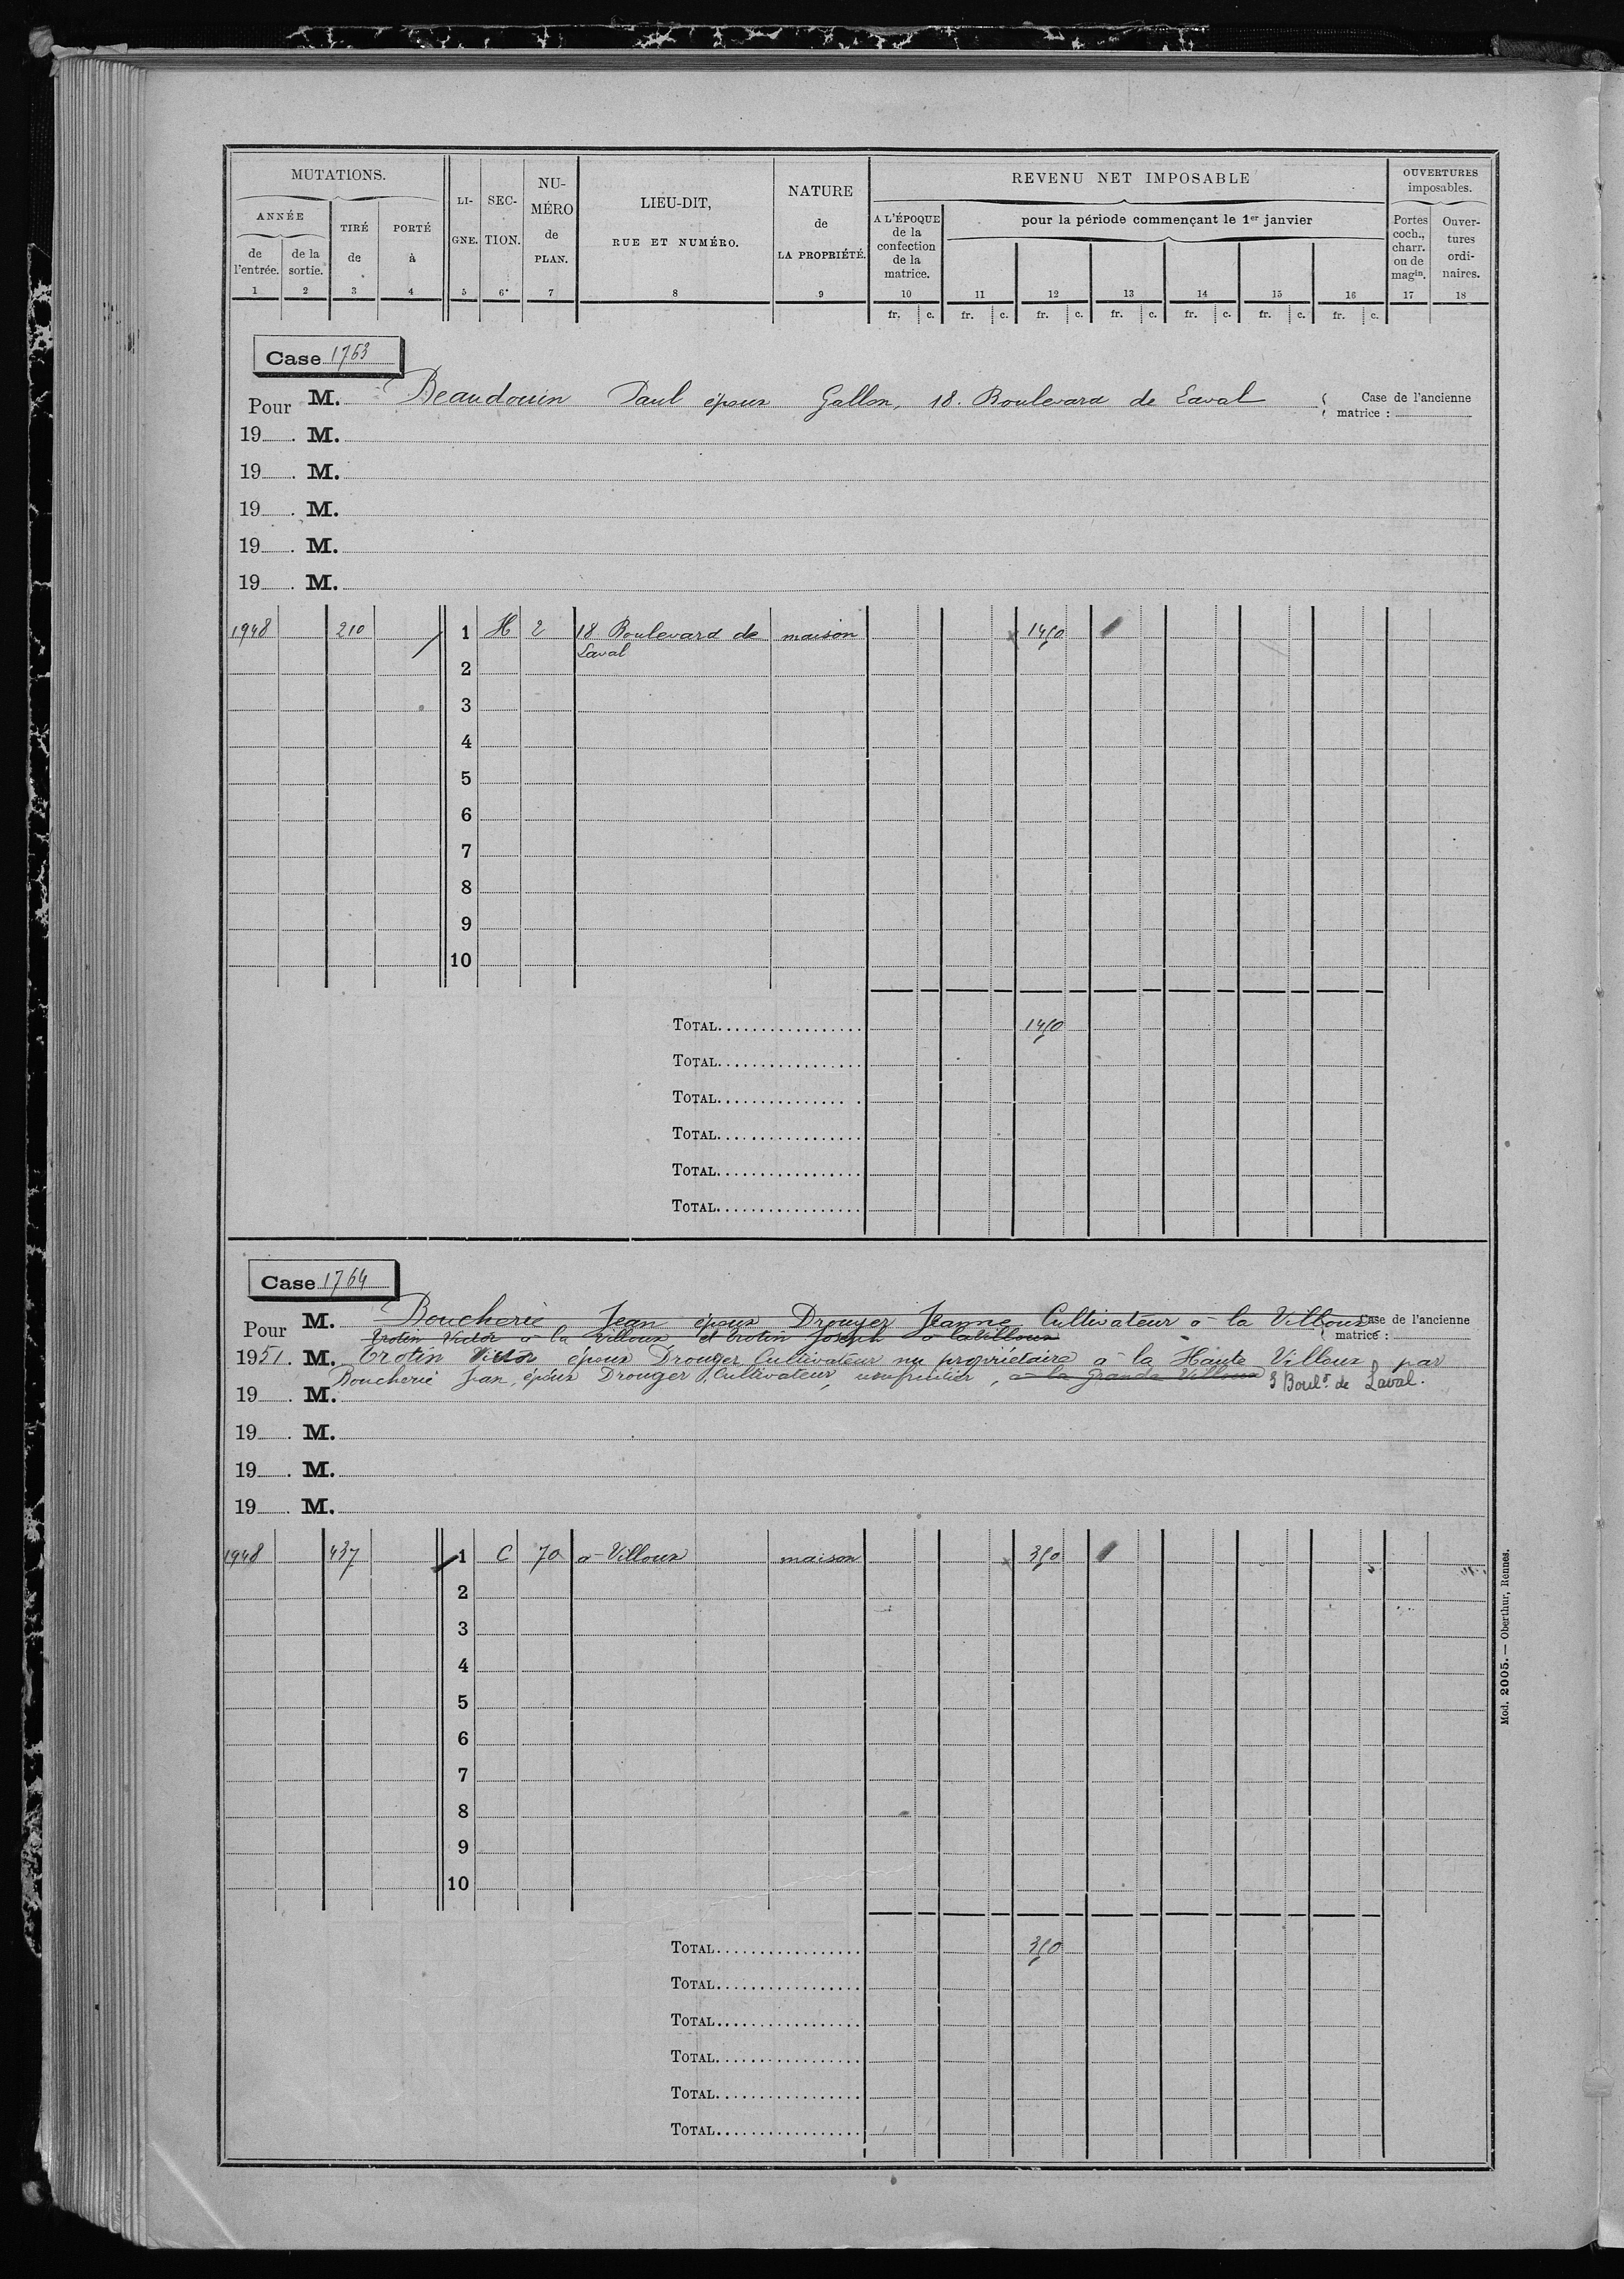 MUTATIONS.
ANNÉE
de l'entrée.
de la sortie.
TIRÉ de
PORTÉ à
LI-GNE.
SEC-TION.
NU-MÉRO de PLAN.
LIEU-DIT,
RUE ET NUMÉRO.
NATURE de LA PROPRIÉTÉ.
REVENU NET IMPOSABLE
A L'ÉPOQUE de la confection de la matrice.
pour la période commençant le 1er janvier
OUVERTURES imposables.
Portes coch., charr. ou de magin.
Ouver-tures ordi-naires.
1 2 3 4 5 6 7 8 9 10 11 12 13 14 15 16 17 18
fr. c. fr. c. fr. c. fr. c. fr. c. fr. c. fr. c.
Case 1763
Pour M. Beaudouin Paul époux Gallon, 18. Boulevard de Laval
Case de l'ancienne matrice :
19 . M.
19 . M.
19 . M.
19 . M.
19 . M.
1948 210 1 H 2 18 Boulevard de maison 1450
Laval
2
3
4
5
6
7
8
9
10
TOTAL 1450
TOTAL
TOTAL
TOTAL
TOTAL
TOTAL
Case 1764
Pour M. Boucherie Jean époux Drouyer Jeanne Cultivateur à la Villoux
Case de l'ancienne matrice :
Trotin Victor à la Villoux et Trotin Joseph à la Villoux
1951. M. Trotin Victor époux Drouyer Cultivateur nu propriétaire à la Haute Villoux par
Boucherie Jean, époux Drouyer Cultivateur, usufruitier, à la Grande Villoux 3 Boul.d de Laval.
19 . M.
19 . M.
19 . M.
19 . M.
1948 437 1 C 70 a Villoux maison 350
2
3
4
5
6
7
8
9
10
TOTAL 350
TOTAL
TOTAL
TOTAL
TOTAL
TOTAL
Mod. 2005. — Oberthur, Rennes.